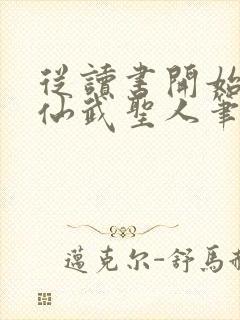 從讀書開始
仙武聖人筆
邁克尔-舒馬赫